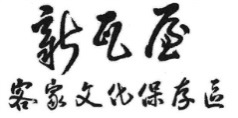 新瓦屋
客家文化保存區